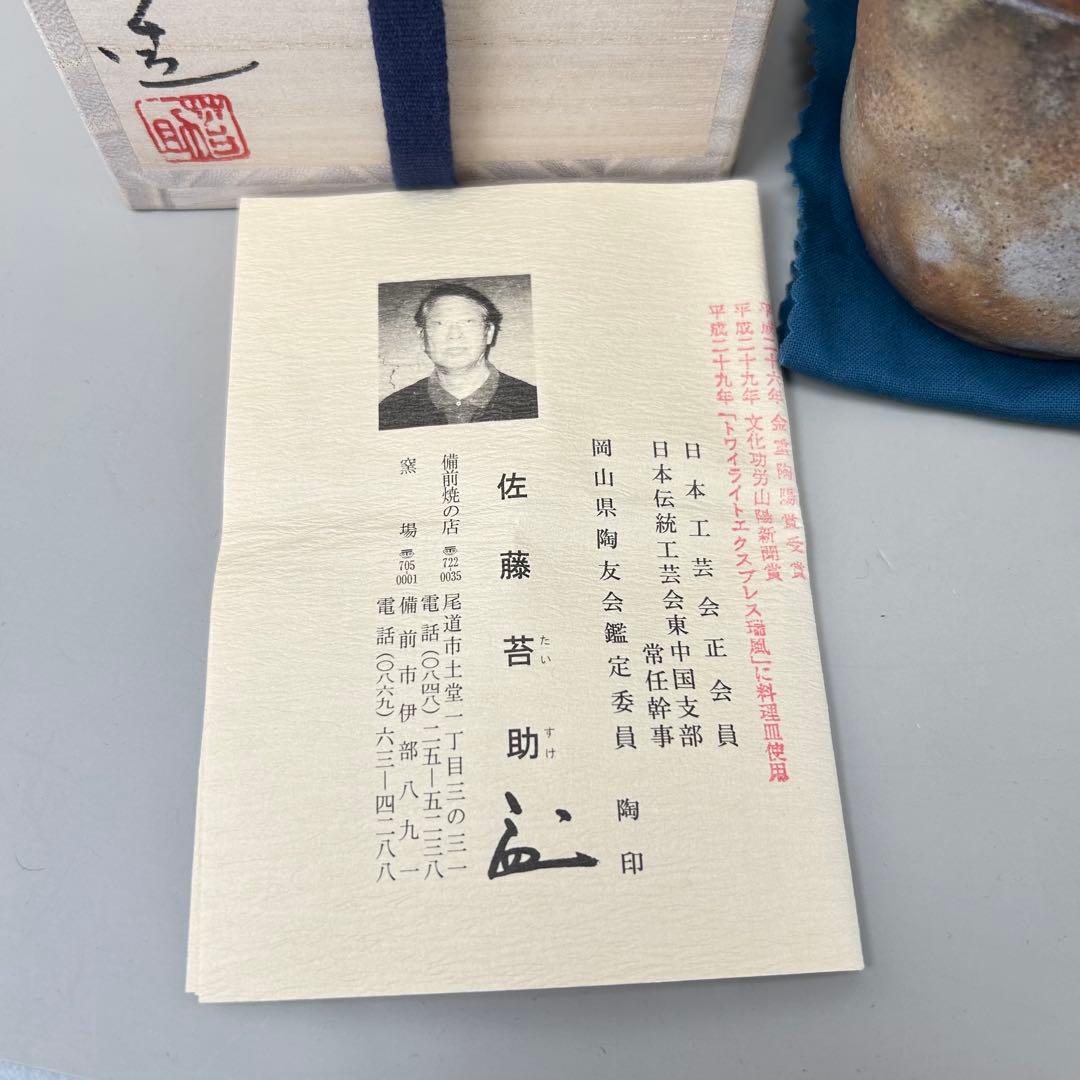 造
苔助
平成二十六年 金重陶陽賞受賞
平成二十九年 文化功労山陽新聞賞
平成二十九年 「トワイライトエクスプレス瑞風」に料理皿使用
日本工芸会正会員
日本伝統工芸会東中国支部
常任幹事
岡山県陶友会鑑定委員
陶印
佐藤苔助
たいすけ
備前焼の店 〒722-0035 尾道市土堂一丁目三の三一
電話(〇八四八)二五―五二三八
窯場 〒705-0001 備前市伊部八九一
電話(〇八六九)六三―四二八八